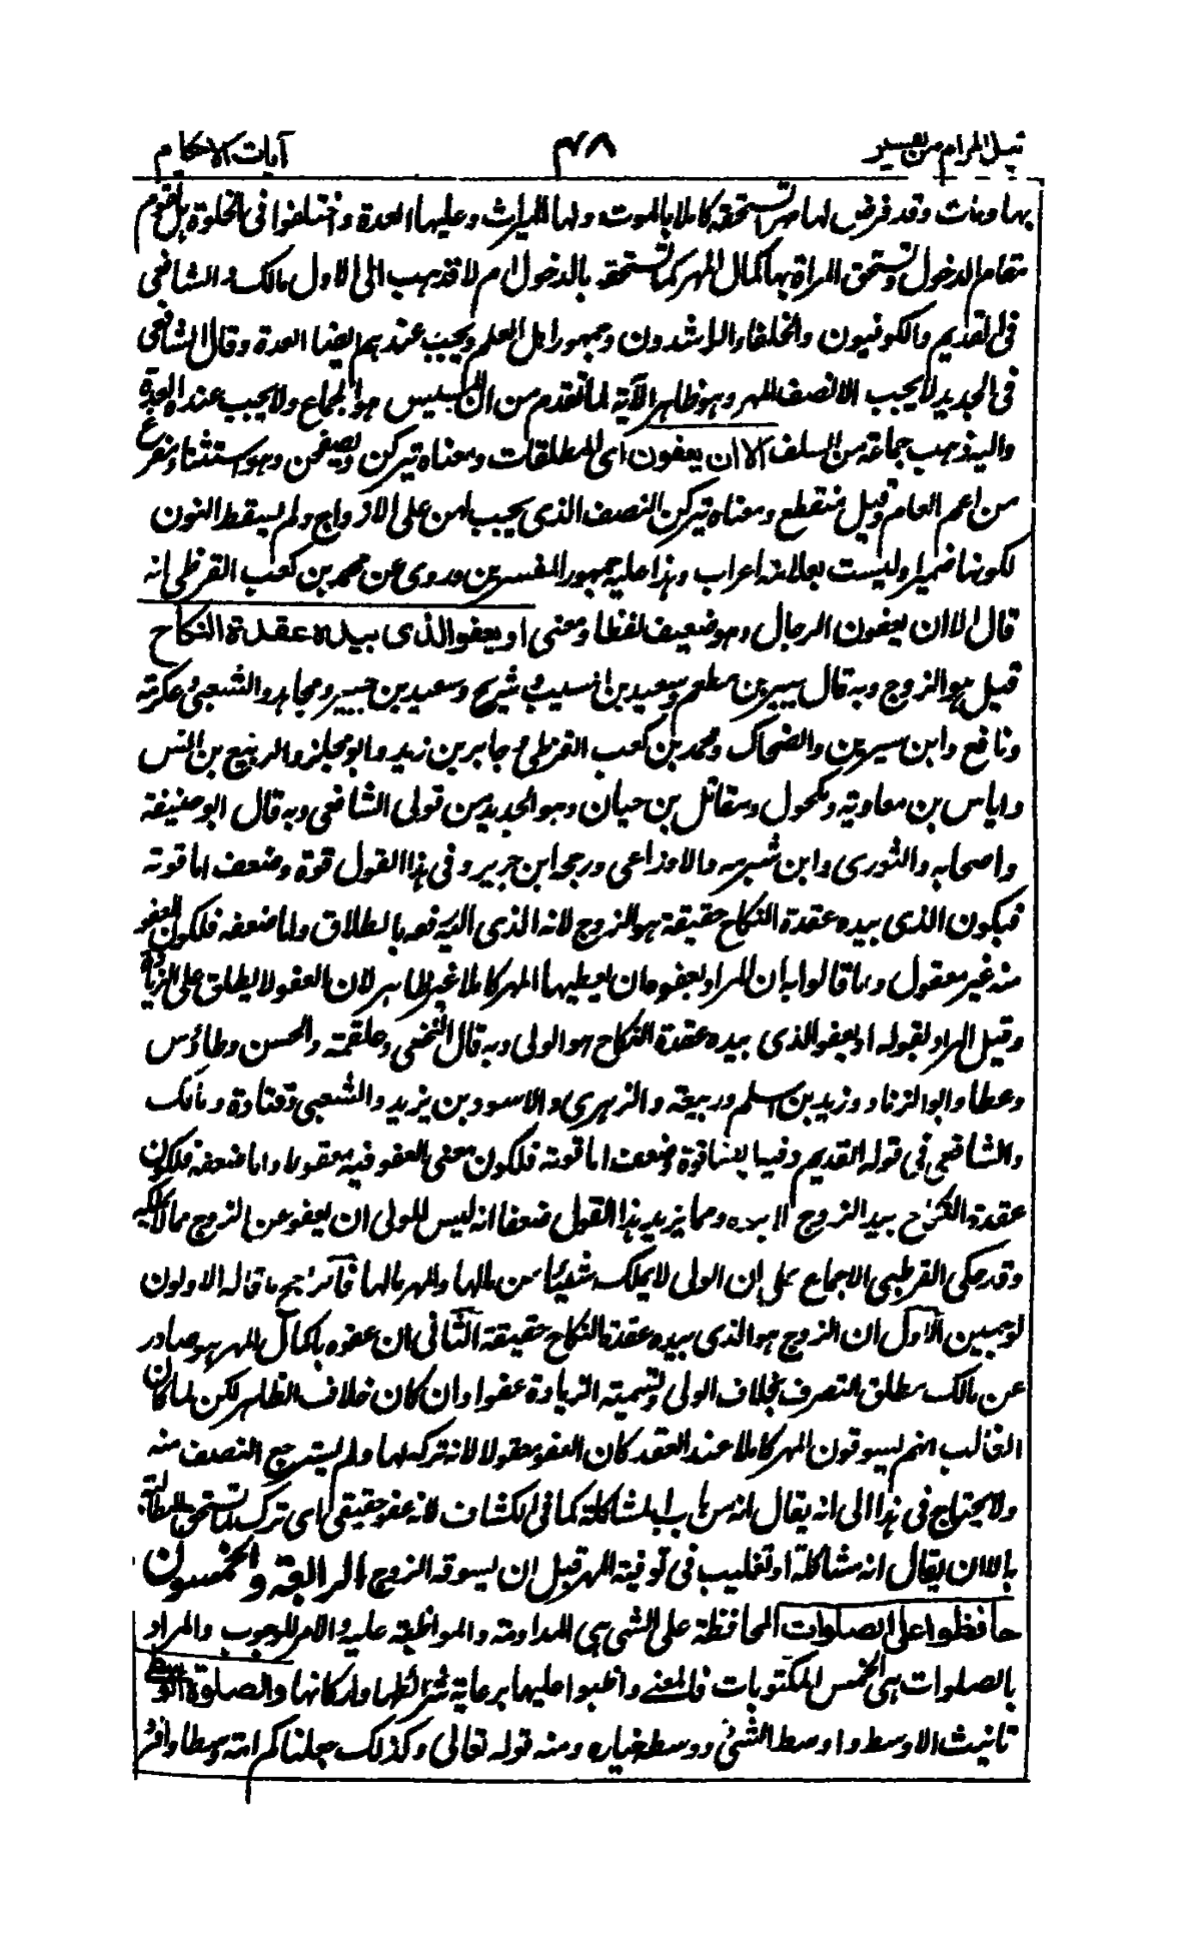 نيل المرام من تفسير ٤٨ آيات الاحكام
بها ومات وقد فرض لها مهرا تستحقه كاملا بالموت ولها الميراث وعليها العدة واختلفوا فى الخلوة هل تقوم
مقام الدخول وتستحق المرأة بها كمال المهر كما تستحقه بالدخول ام لا فذهب الى الاول مالك والشافعى
فى القديم والكوفيون والخلفاء الراشدون وجمهور اهل العلم ويجب عندهم ايضا العدة وقال الشافعى
فى الجديد لا يجب الا نصف المهر وهو ظاهر الآية لما تقدم من ان المسيس هو الجماع ولا يجب عنده العدة
واليه ذهب جماعة من السلف الا ان يعفون اى المطلقات ومعناه يتركن ويصفحن وهو استثناء مفرغ
من اعم العام وقيل منقطع ومعناه يتركن النصف الذى يجب لهن على الازواج ولم يسقط النون
لكونها ضميرا وليست بعلامة اعراب وهذا عليه جمهور المفسرين وروى عن محمد بن كعب القرظى انه
قال الا ان يعفون الرجال وهو ضعيف لفظا ومعنى او يعفو الذى بيده عقدة النكاح
قيل هو الزوج وبه قال جبير بن مطعم وسعيد بن المسيب وشريح وسعيد بن جبير ومجاهد والشعبى وعكرمة
ونافع وابن سيرين والضحاك ومحمد بن كعب القرظى وجابر بن زيد وابو مجلز والربيع بن انس
واياس بن معاوية ومكحول ومقاتل بن حيان وهو الجديد من قولى الشافعى وبه قال ابو حنيفة
واصحابه والثورى وابن شبرمه والاوزاعى ورجحه ابن جرير وفى هذا القول قوة وضعف اما قوته
فبكون الذى بيده عقدة النكاح حقيقة هو الزوج لانه الذى اليه رفعه بالطلاق واما ضعفه فلكون العفو
منه غير معقول وما قالوا به ان المراد بعفوه ان يعطيها المهر كاملا غير ظاهر لان العفو لا يطلق على الزيادة
وقيل المراد بقوله او يعفو الذى بيده عقدة النكاح هو الولى وبه قال النخعى وعلقمة والحسن وطاؤس
وعطاء وابو الزناد وزيد بن اسلم وربيعة والزهرى والاسود بن يزيد والشعبى وقتادة ومالك
والشافعى فى قوله القديم وفيه ايضا قوة وضعف اما قوته فلكون معنى العفو فيه معقولا واما ضعفه فلكون
عقدة النكاح بيد الزوج لا بيده ومما يزيد هذا القول ضعفا انه ليس للولى ان يعفو عن الزوج مما لا يملكه
وقد حكى القرطبى الاجماع على ان الولى لا يملك شيئا من مالها والمهر مالها فالراجح ما قاله الاولون
لوجهين الاول ان الزوج هو الذى بيده عقدة النكاح حقيقة الثانى ان عفوه باكمال المهر هو صادر
عن مالك مطلق التصرف بخلاف الولى وتسمية الزيادة عفوا وان كان خلاف الظاهر لكن لما كان
الغالب انهم يسوقون المهر كاملا عند العقد كان العفو معقولا لانه تركه لها ولم يسترجع النصف منه
ولا يحتاج فى هذا الى انه يقال انه من باب المشاكلة كما فى الكشاف لانه عفو حقيقى اى ترك لما تستحق المطالبة
به الا ان يقال انه مشاكلة او تغليب فى توفية المهر قبل ان يسوقه الزوج الرابعة والخمسون
حافظوا على الصلوات المحافظة على الشئ هى المداومة والمواظبة عليه والامر للوجوب والمراد
بالصلوات هى الخمس المكتوبات فالمعنے واظبوا عليها برعاية شرائطها واركانها والصلوة الوسطى
تانيث الاوسط واوسط الشئ ووسطه خياره ومنه قوله تعالى وكذلك جعلناكم امة وسطا وافرد